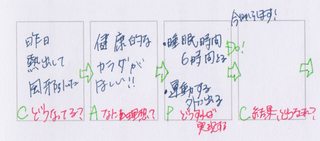 今やります!
昨日
熱出して
風邪引いた
健康的な
カラダが
ほしい!!
・睡眠時間
6時間とる
・運動する
外出る
Do!
C どうなってる?
A なに
理想って
P どうすれば
実現する
C 結果、どうなれた?